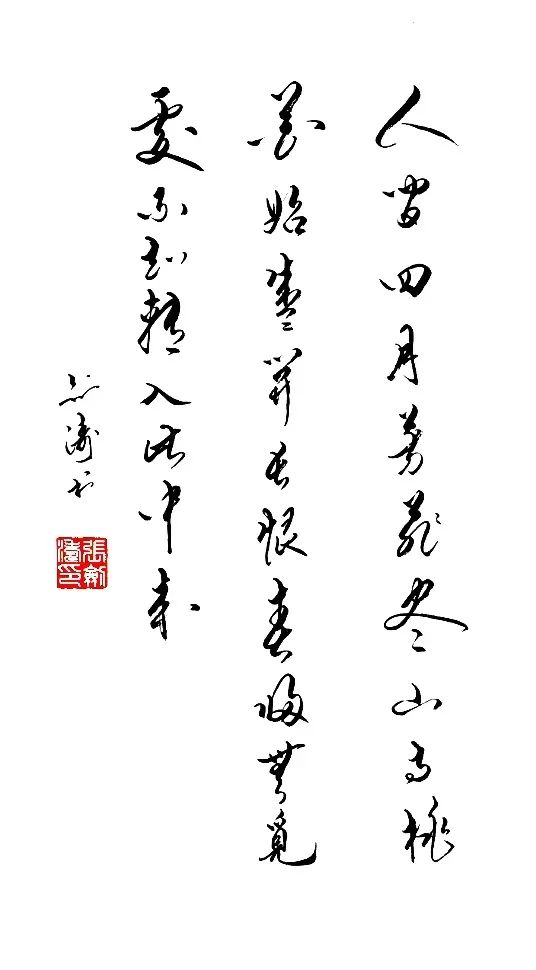 人間四月芳菲尽山寺桃
花始盛開長恨春歸無覓
處不知轉入此中來
濤书
張劍濤印